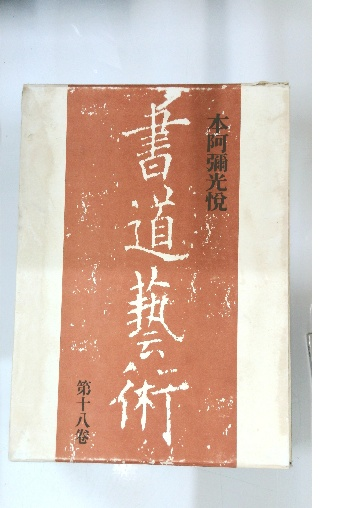 本阿彌光悅
書道藝術
第十八卷